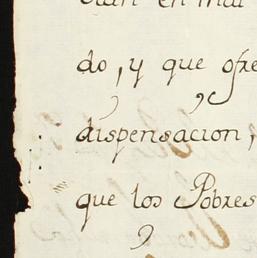 en mal
do, y que ofre
dispensacion,
que los Pobres